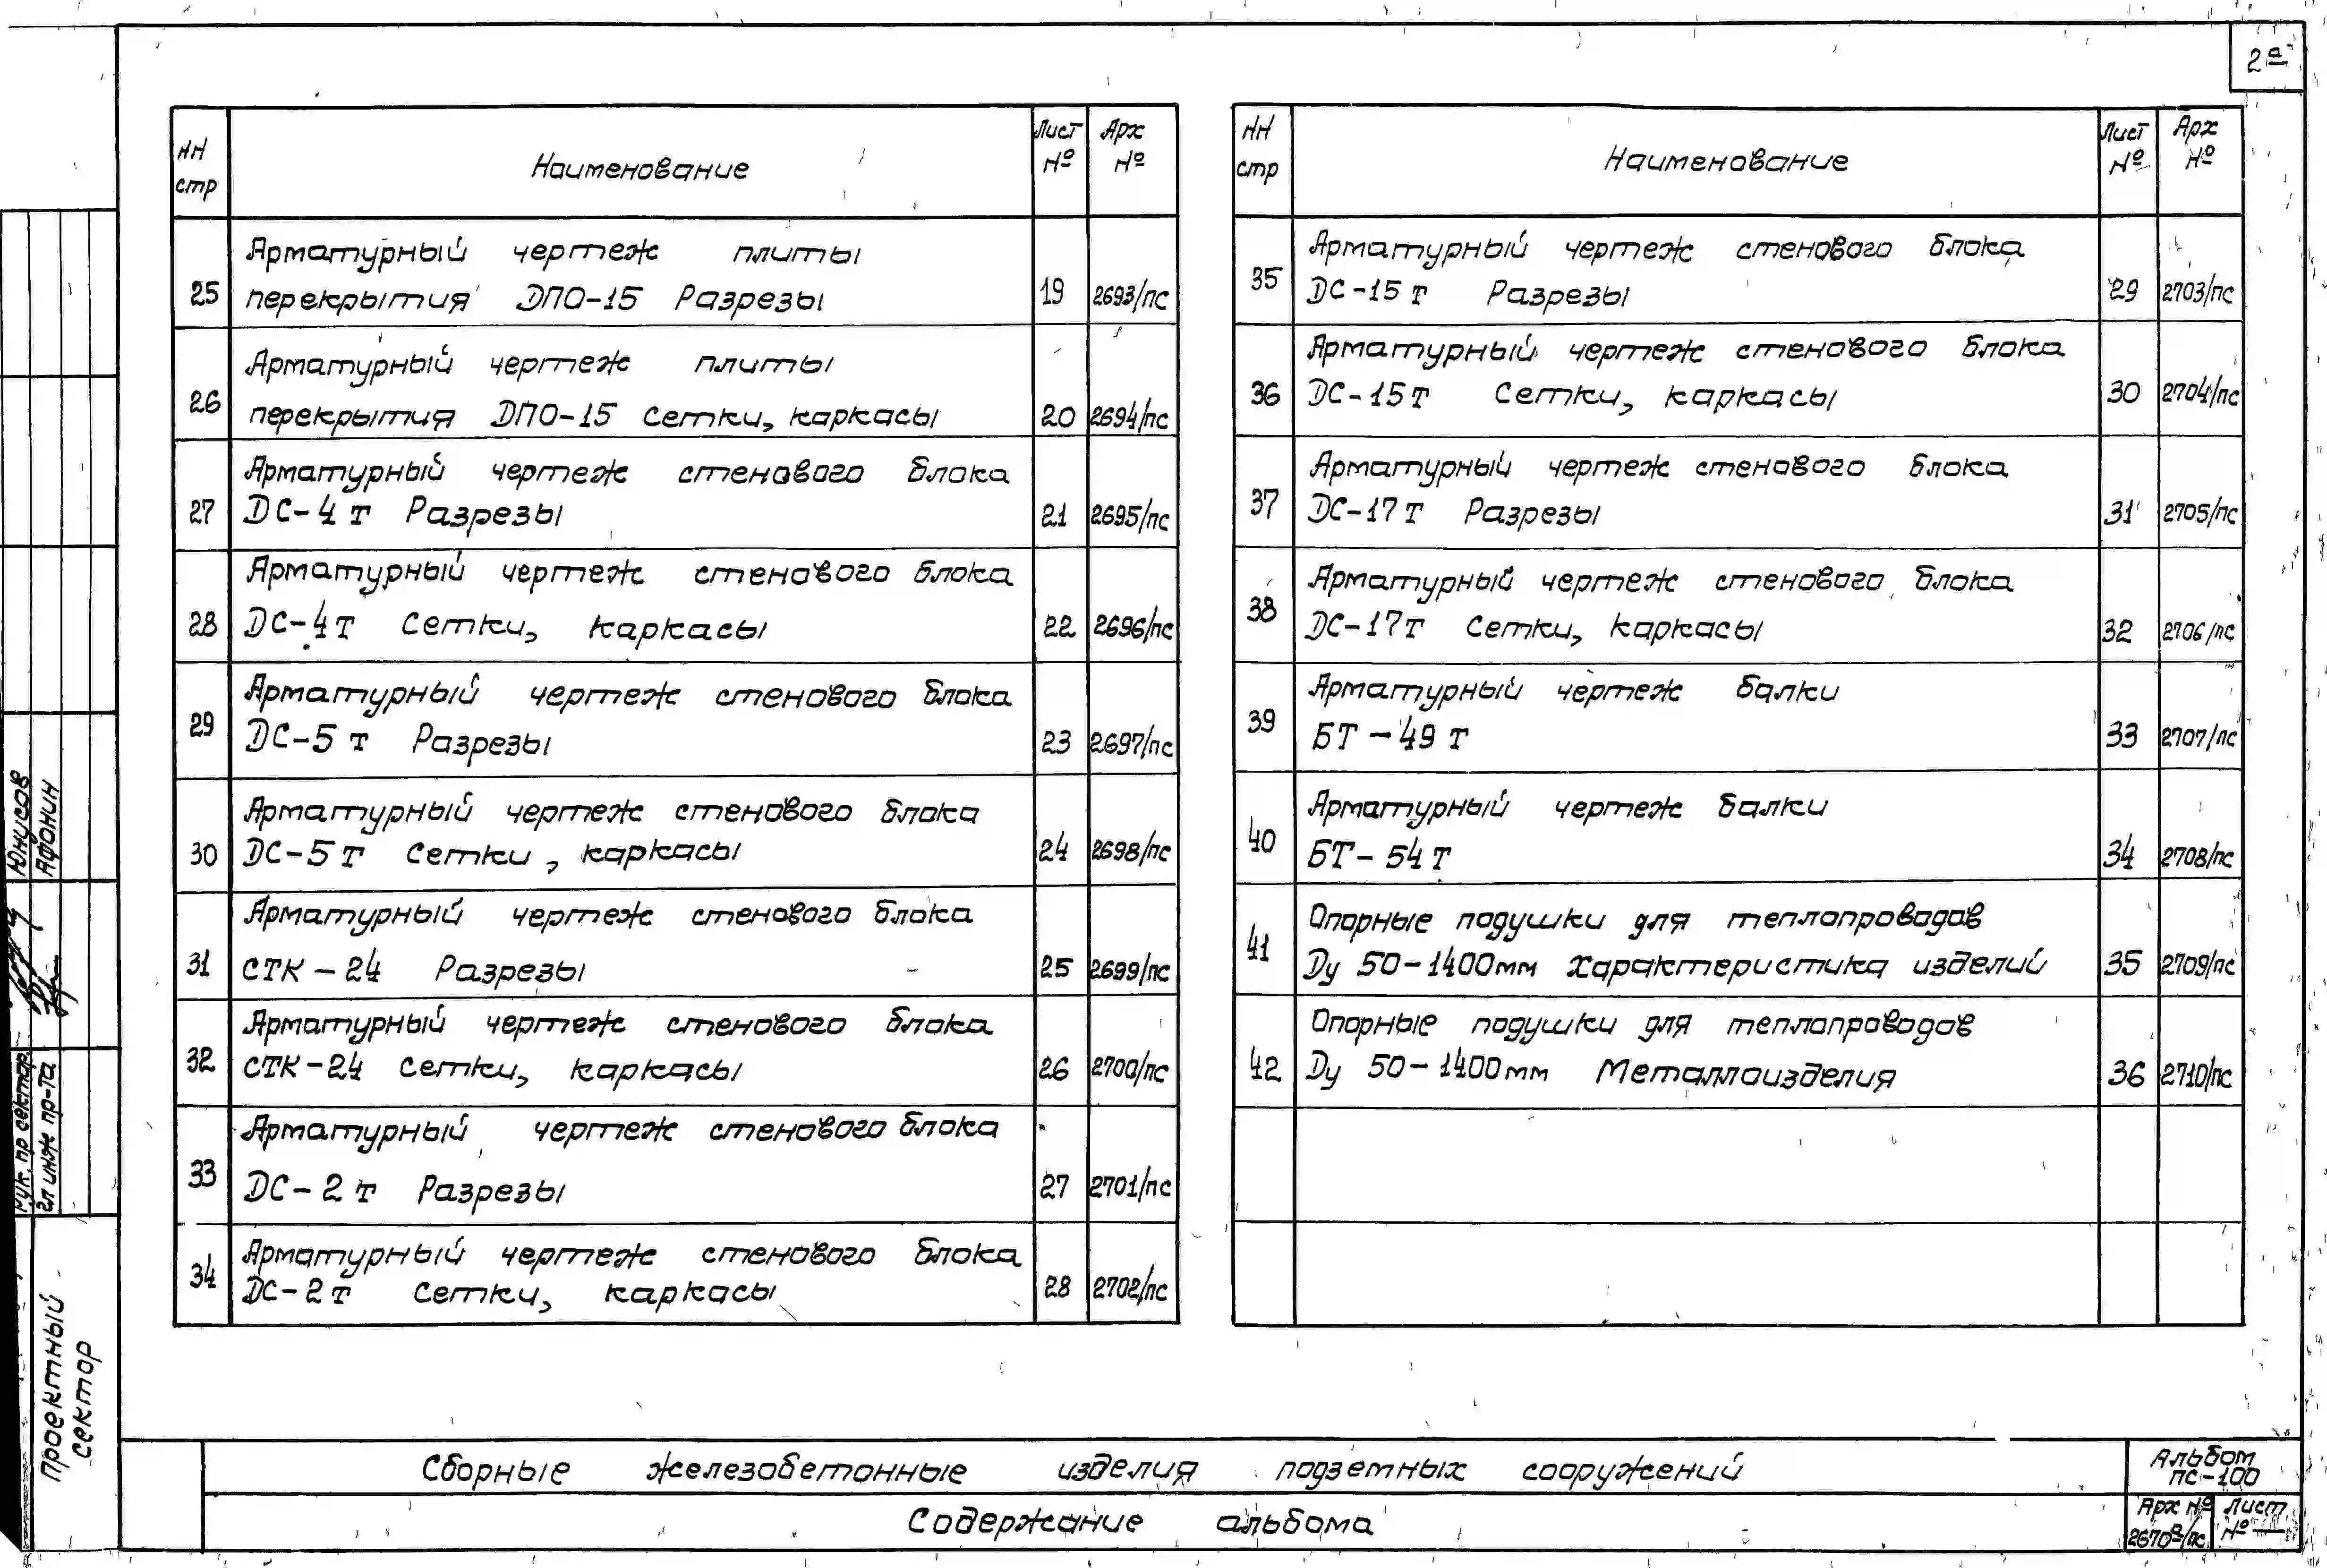 2а
НН стр Наименование Лист № Арх №
25 Арматурный чертеж плиты
перекрытия ДПО-15 Разрезы 19 2693/пс
26 Арматурный чертеж плиты
перекрытия ДПО-15 сетки, каркасы 20 2694/пс
27 Арматурный чертеж стенового блока
ДС-4т Разрезы 21 2695/пс
28 Арматурный чертеж стенового блока
ДС-4т сетки, каркасы 22 2696/пс
29 Арматурный чертеж стенового блока
ДС-5т Разрезы 23 2697/пс
30 Арматурный чертеж стенового блока
ДС-5т сетки, каркасы 24 2698/пс
31 Арматурный чертеж стенового блока
СТК-24 Разрезы 25 2699/пс
32 Арматурный чертеж стенового блока
СТК-24 сетки, каркасы 26 2700/пс
33 Арматурный чертеж стенового блока
ДС-2т Разрезы 27 2701/пс
34 Арматурный чертеж стенового блока
ДС-2т сетки, каркасы 28 2702/пс
НН стр Наименование Лист № Арх №
35 Арматурный чертеж стенового блока
ДС-15т Разрезы 29 2703/пс
36 Арматурный чертеж стенового блока
ДС-15т сетки, каркасы 30 2704/пс
37 Арматурный чертеж стенового блока
ДС-17т Разрезы 31 2705/пс
38 Арматурный чертеж стенового блока
ДС-17т сетки, каркасы 32 2706/пс
39 Арматурный чертеж балки
БТ-49т 33 2707/пс
40 Арматурный чертеж балки
БТ-54т 34 2708/пс
41 Опорные подушки для теплопроводов
Dу 50-1400мм Характеристика изделий 35 2709/пс
42 Опорные подушки для теплопроводов
Dу 50-1400мм Металлоизделия 36 2710/пс
Юнусов
Афонин
рук. пр сектор.
Гл инж пр-та
проектный
сектор
Сборные железобетонные изделия подземных сооружений
Содержание альбома
Альбом
ПС-100
Арх № Лист
2670в/пс № —